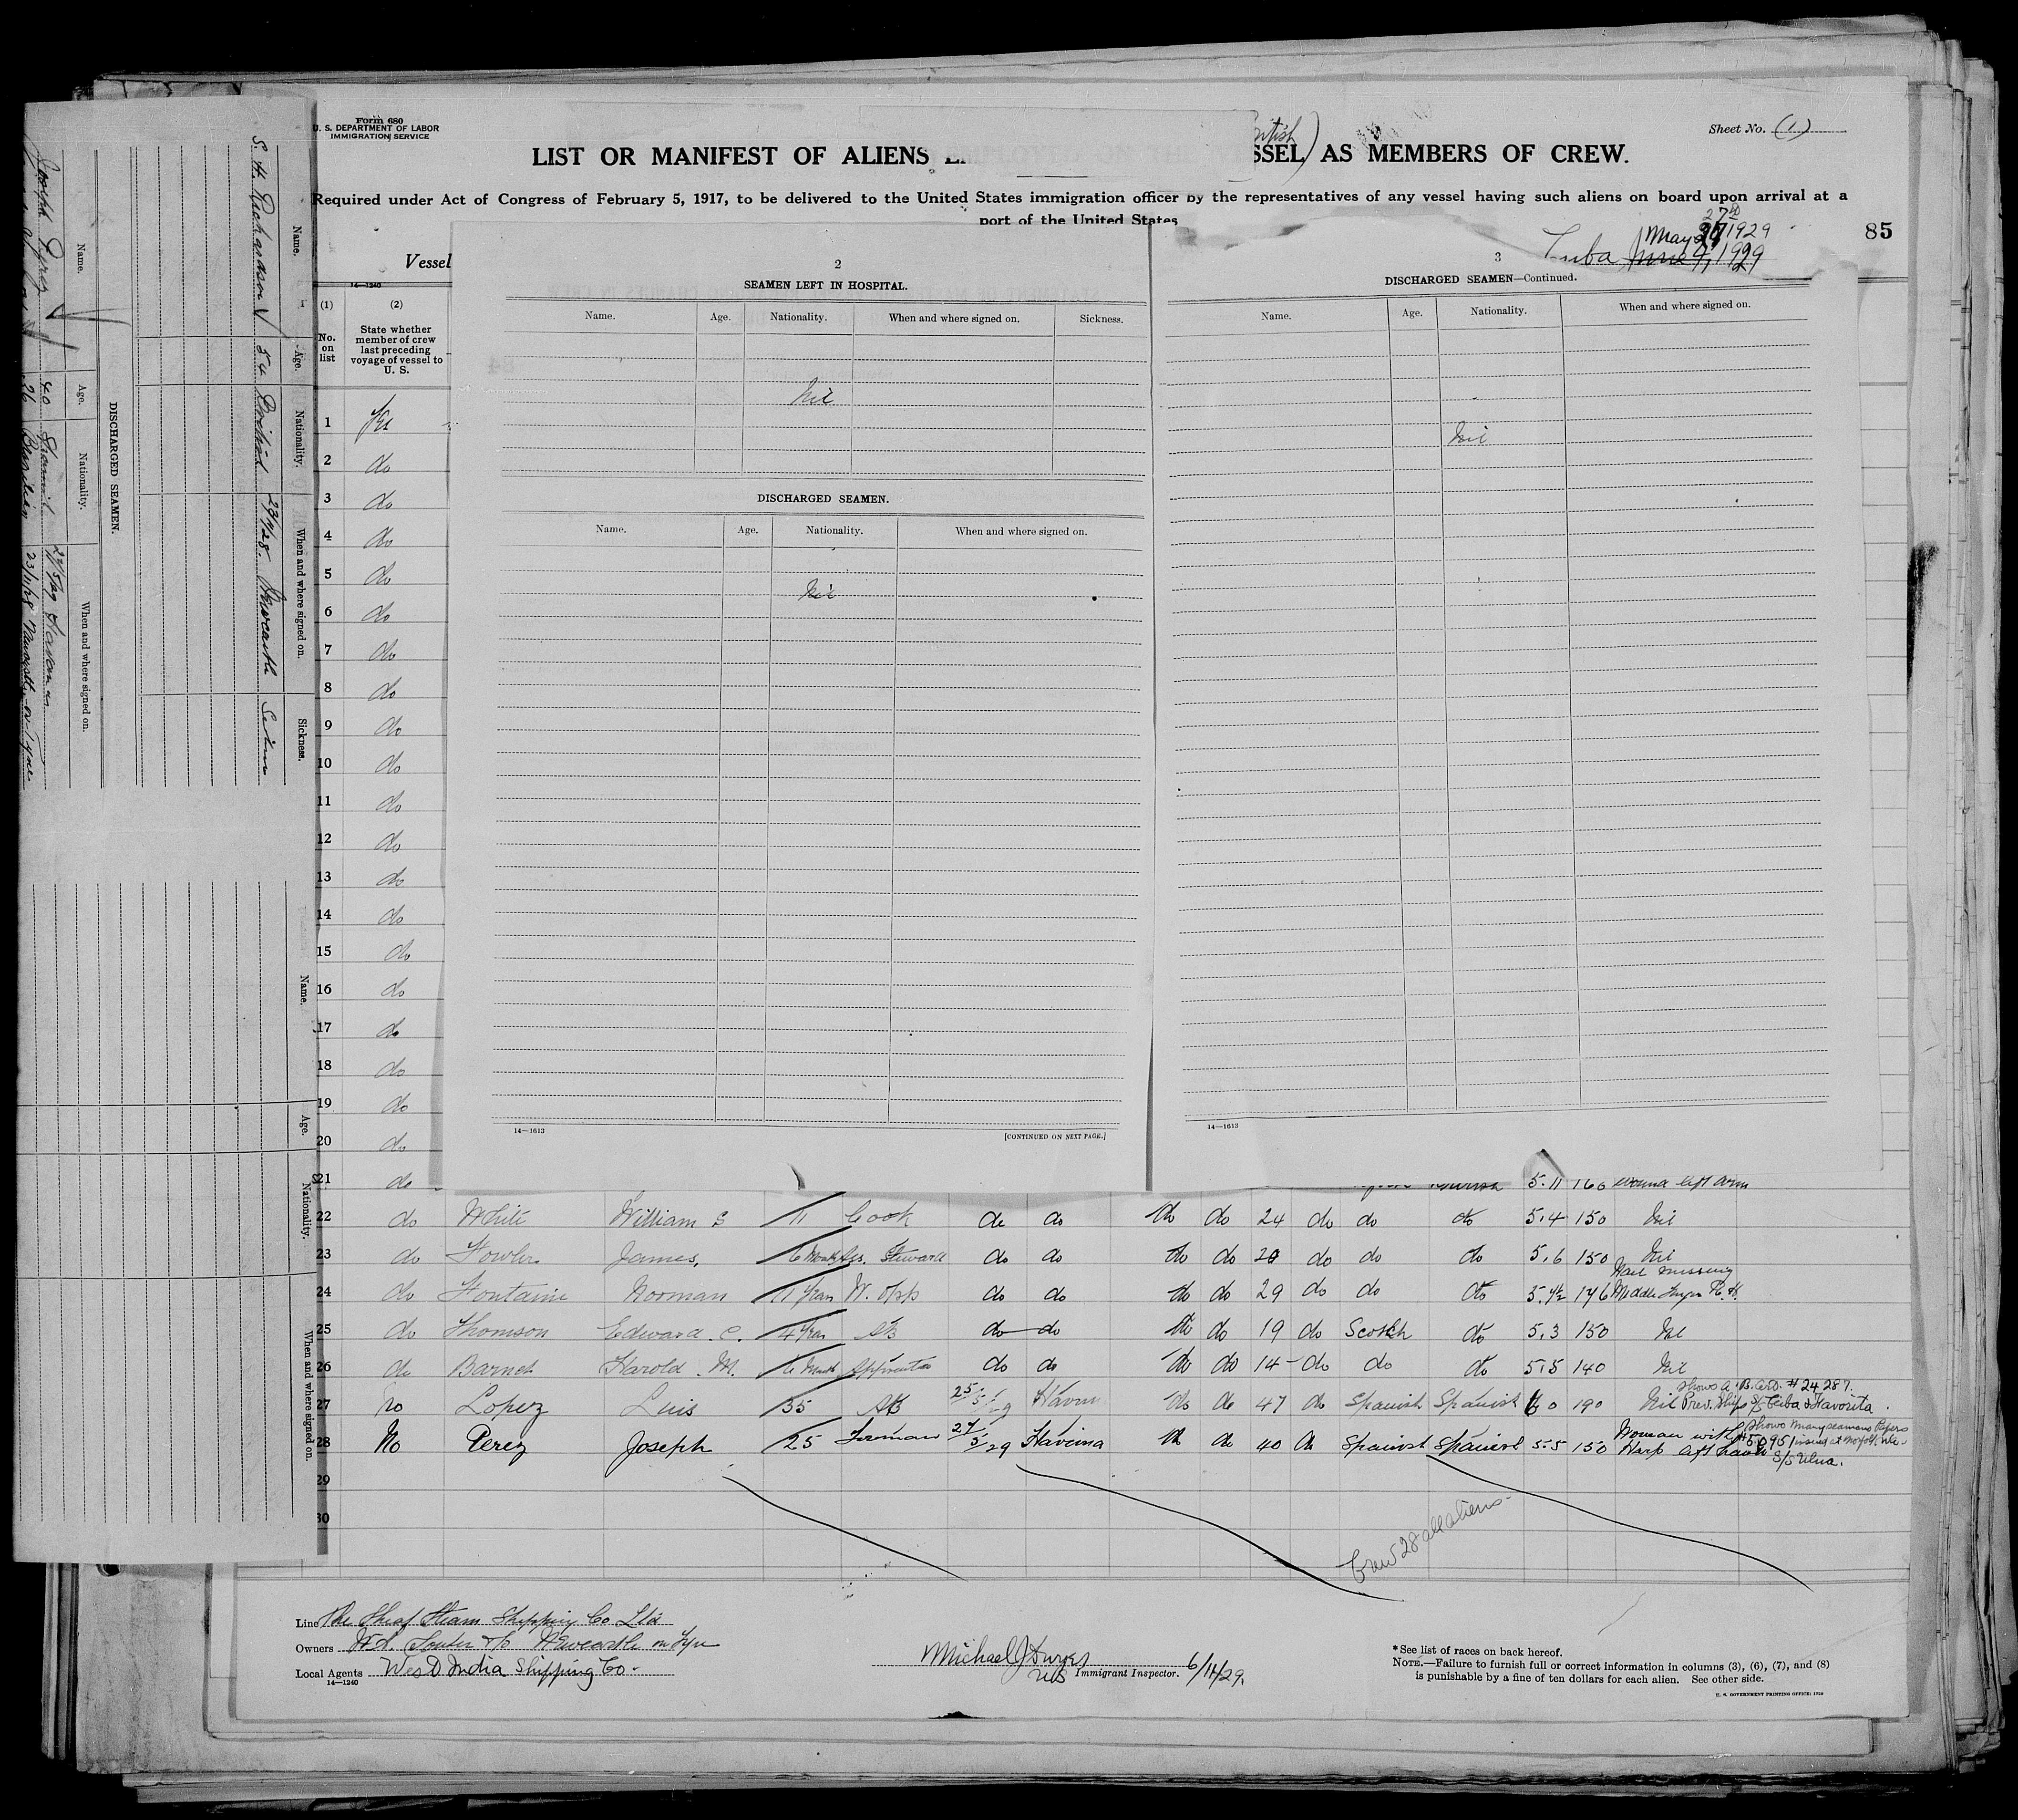 Form 680
U. S. DEPARTMENT OF LABOR
IMMIGRATION SERVICE
Sheet No. (1)
LIST OR MANIFEST OF ALIENS
SSEL AS MEMBERS OF CREW.
Required under Act of Congress of February 5, 1917, to be delivered to the United States immigration officer by the representatives of any vessel having such aliens on board upon arrival at a
port of the United States
85
Vessel
Cuba
May 27 1929
1929
14—1240
(1) (2)
No. on list
State whether member of crew last preceding voyage of vessel to U. S.
2
SEAMEN LEFT IN HOSPITAL.
Name. Age. Nationality. When and where signed on. Sickness.
Nil
DISCHARGED SEAMEN.
Name. Age. Nationality. When and where signed on.
Nil
14—1613
[CONTINUED ON NEXT PAGE.]
3
DISCHARGED SEAMEN—Continued.
Name. Age. Nationality. When and where signed on.
Nil
14—1613
Name. Age. Nationality. When and where signed on. Sickness.
S. H. Richardson 54 British 23/11/28 Newcastle
DISCHARGED SEAMEN.
Name. Age. Nationality. When and where signed on.
Joseph Perez 40 Spanish 27/5/29 Havana
26 Brazilian 23/11/28 Newcastle on Tyne
Name. Age. Nationality. When and where signed on.
1 Yes
2 do
3 do
4 do
5 do
6 do
7 do
8 do
9 do
10 do
11 do
12 do
13 do
14 do
15 do
16 do
17 do
18 do
19 do
20 do
21 do 5.11 160 wound left arm
22 do White William S 11 Cook do do do do 24 do do do 5.4 150 Nil
23 do Fowler James, 6 Months Ass. Steward do do do do 20 do do do 5.6 150 Nil
24 do Fontaine Norman 11 Years W. Opp do do do do 29 do do do 5.4½ 146 Nail missing Middle finger R. H.
25 do Thomson Edward. C. 4 Years AB do do do do 19 do Scotch do 5.3 150 Nil
26 do Barnet Harold. M. 6 Month Apprentice do do do do 14 do do do 5.5 140 Nil
27 No Lopez Luis 35 AB 25/5/29 Havana do do 47 do Spanish Spanish 6 0 190 Nil
Shows A. B. Cert. # 24287.
Prev. Ships S/S Ceiba & Favorita.
28 No Perez Joseph 25 Fireman 27/5/29 Havana do do 40 do Spanish Spanish 5.5 150 Woman with Harp left hand
Shows seamans
#50951 issued at Norfolk
S/S Elna.
29
30
Crew 28 all aliens
Line The Sheaf Steam Shipping Co Ltd
Owners W. A. Souter & Co Newcastle on Tyne
Local Agents West India Shipping Co.
14—1240
Michael J
US Immigrant Inspector. 6/14/29.
*See list of races on back hereof.
NOTE.—Failure to furnish full or correct information in columns (3), (6), (7), and (8)
is punishable by a fine of ten dollars for each alien. See other side.
U. S. GOVERNMENT PRINTING OFFICE: